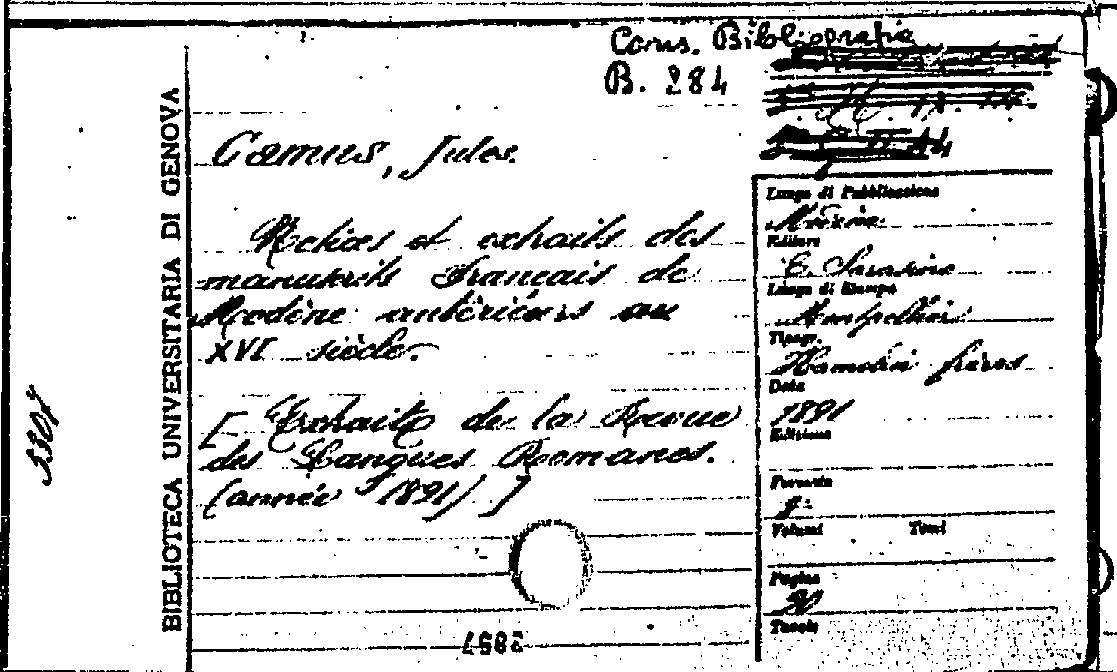 Cons. Bibliografia
B. 284
Camus, Jules.
Notices et extraits des
manuscrits français de
Modène antérieurs au
XVI siècle.
[Extraits de la Revue
des Langues Romanes.
(année 1891)]
BIBLIOTECA UNIVERSITARIA DI GENOVA
3307
Luogo di Pubblicazione
Modène
Editore
E. Sarasino
Luogo di Stampa
Montpellier
Tipogr.
Hamelin frères
Data
1891
Edizione
Formato
8°
Volumi Tomi
Pagine
90
Tavole
3857